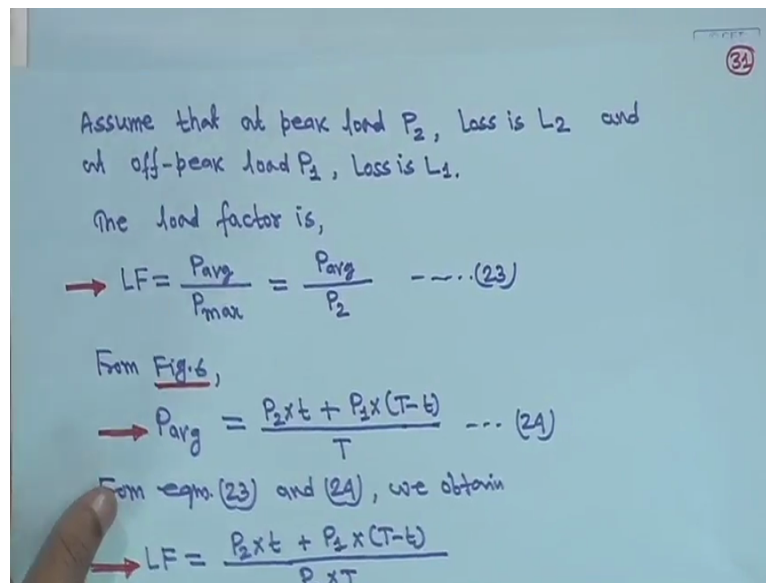 31
Assume that at peak load P₂, Loss is L2 and
at off-peak load P₁, Loss is L₁.
The load factor is,
→ LF = Pavg / Pmax = Pavg / P₂ ----.(23)
From Fig.6,
→ Pavg = (P₂×t + P₁×(T-t)) / T --- (24)
From eqn.(23) and (24), we obtain
→ LF = (P₂×t + P₁×(T-t)) / P₂×T